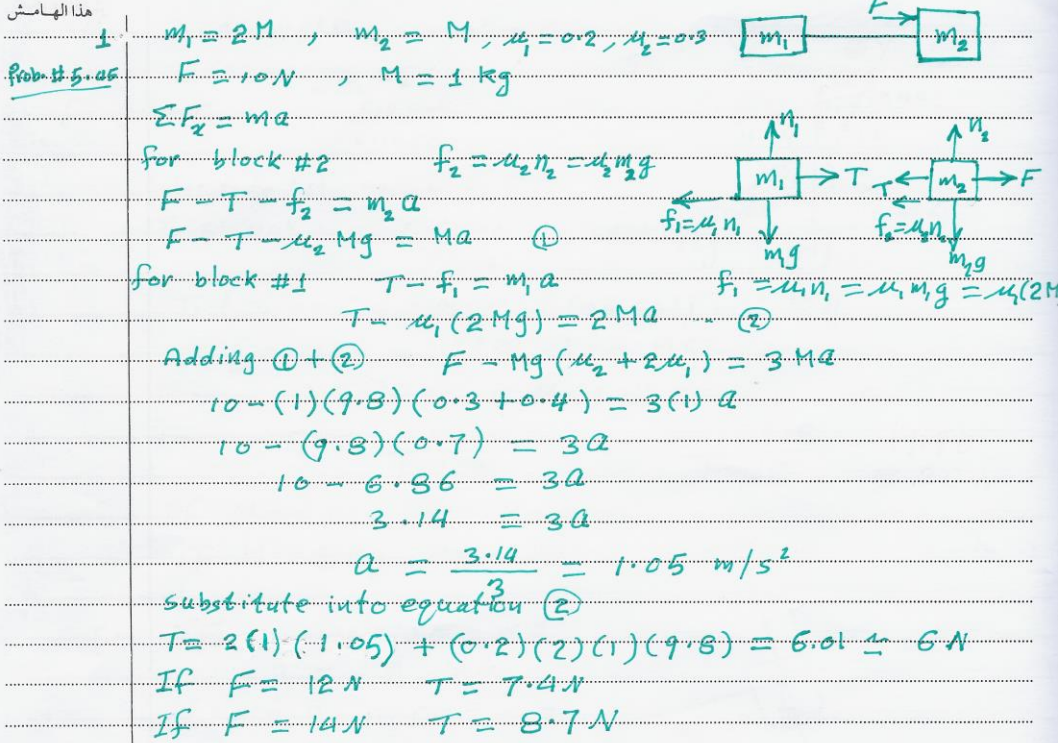 هذا الهامش
1 m₁ = 2M , m₂ = M , μ₁ = 0.2 , μ₂ = 0.3
F
m₁ m₂
Prob. # 5.45 F = 10N , M = 1 kg
ΣFₓ = ma
n₁ n₂
for block #2 f₂ = μ₂n₂ = μ₂m₂g
m₁ T T m₂ F
F - T - f₂ = m₂a
f₁ = μ₁n₁ f₂ = μ₂n₂
F - T - μ₂Mg = Ma ①
m₁g m₂g
for block #1 T - f₁ = m₁a
f₁ = μ₁n₁ = μ₁m₁g = μ₁(2M
T - μ₁(2Mg) = 2Ma - ②
Adding ① + ② F - Mg(μ₂ + 2μ₁) = 3Ma
10 - (1)(9.8)(0.3 + 0.4) = 3(1)a
10 - (9.8)(0.7) = 3a
10 - 6.86 = 3a
3.14 = 3a
a = 3.14/3 = 1.05 m/s²
substitute into equation ②
T = 2(1)(1.05) + (0.2)(2)(1)(9.8) = 6.01 ≃ 6N
If F = 12N T = 7.4N
If F = 14N T = 8.7N